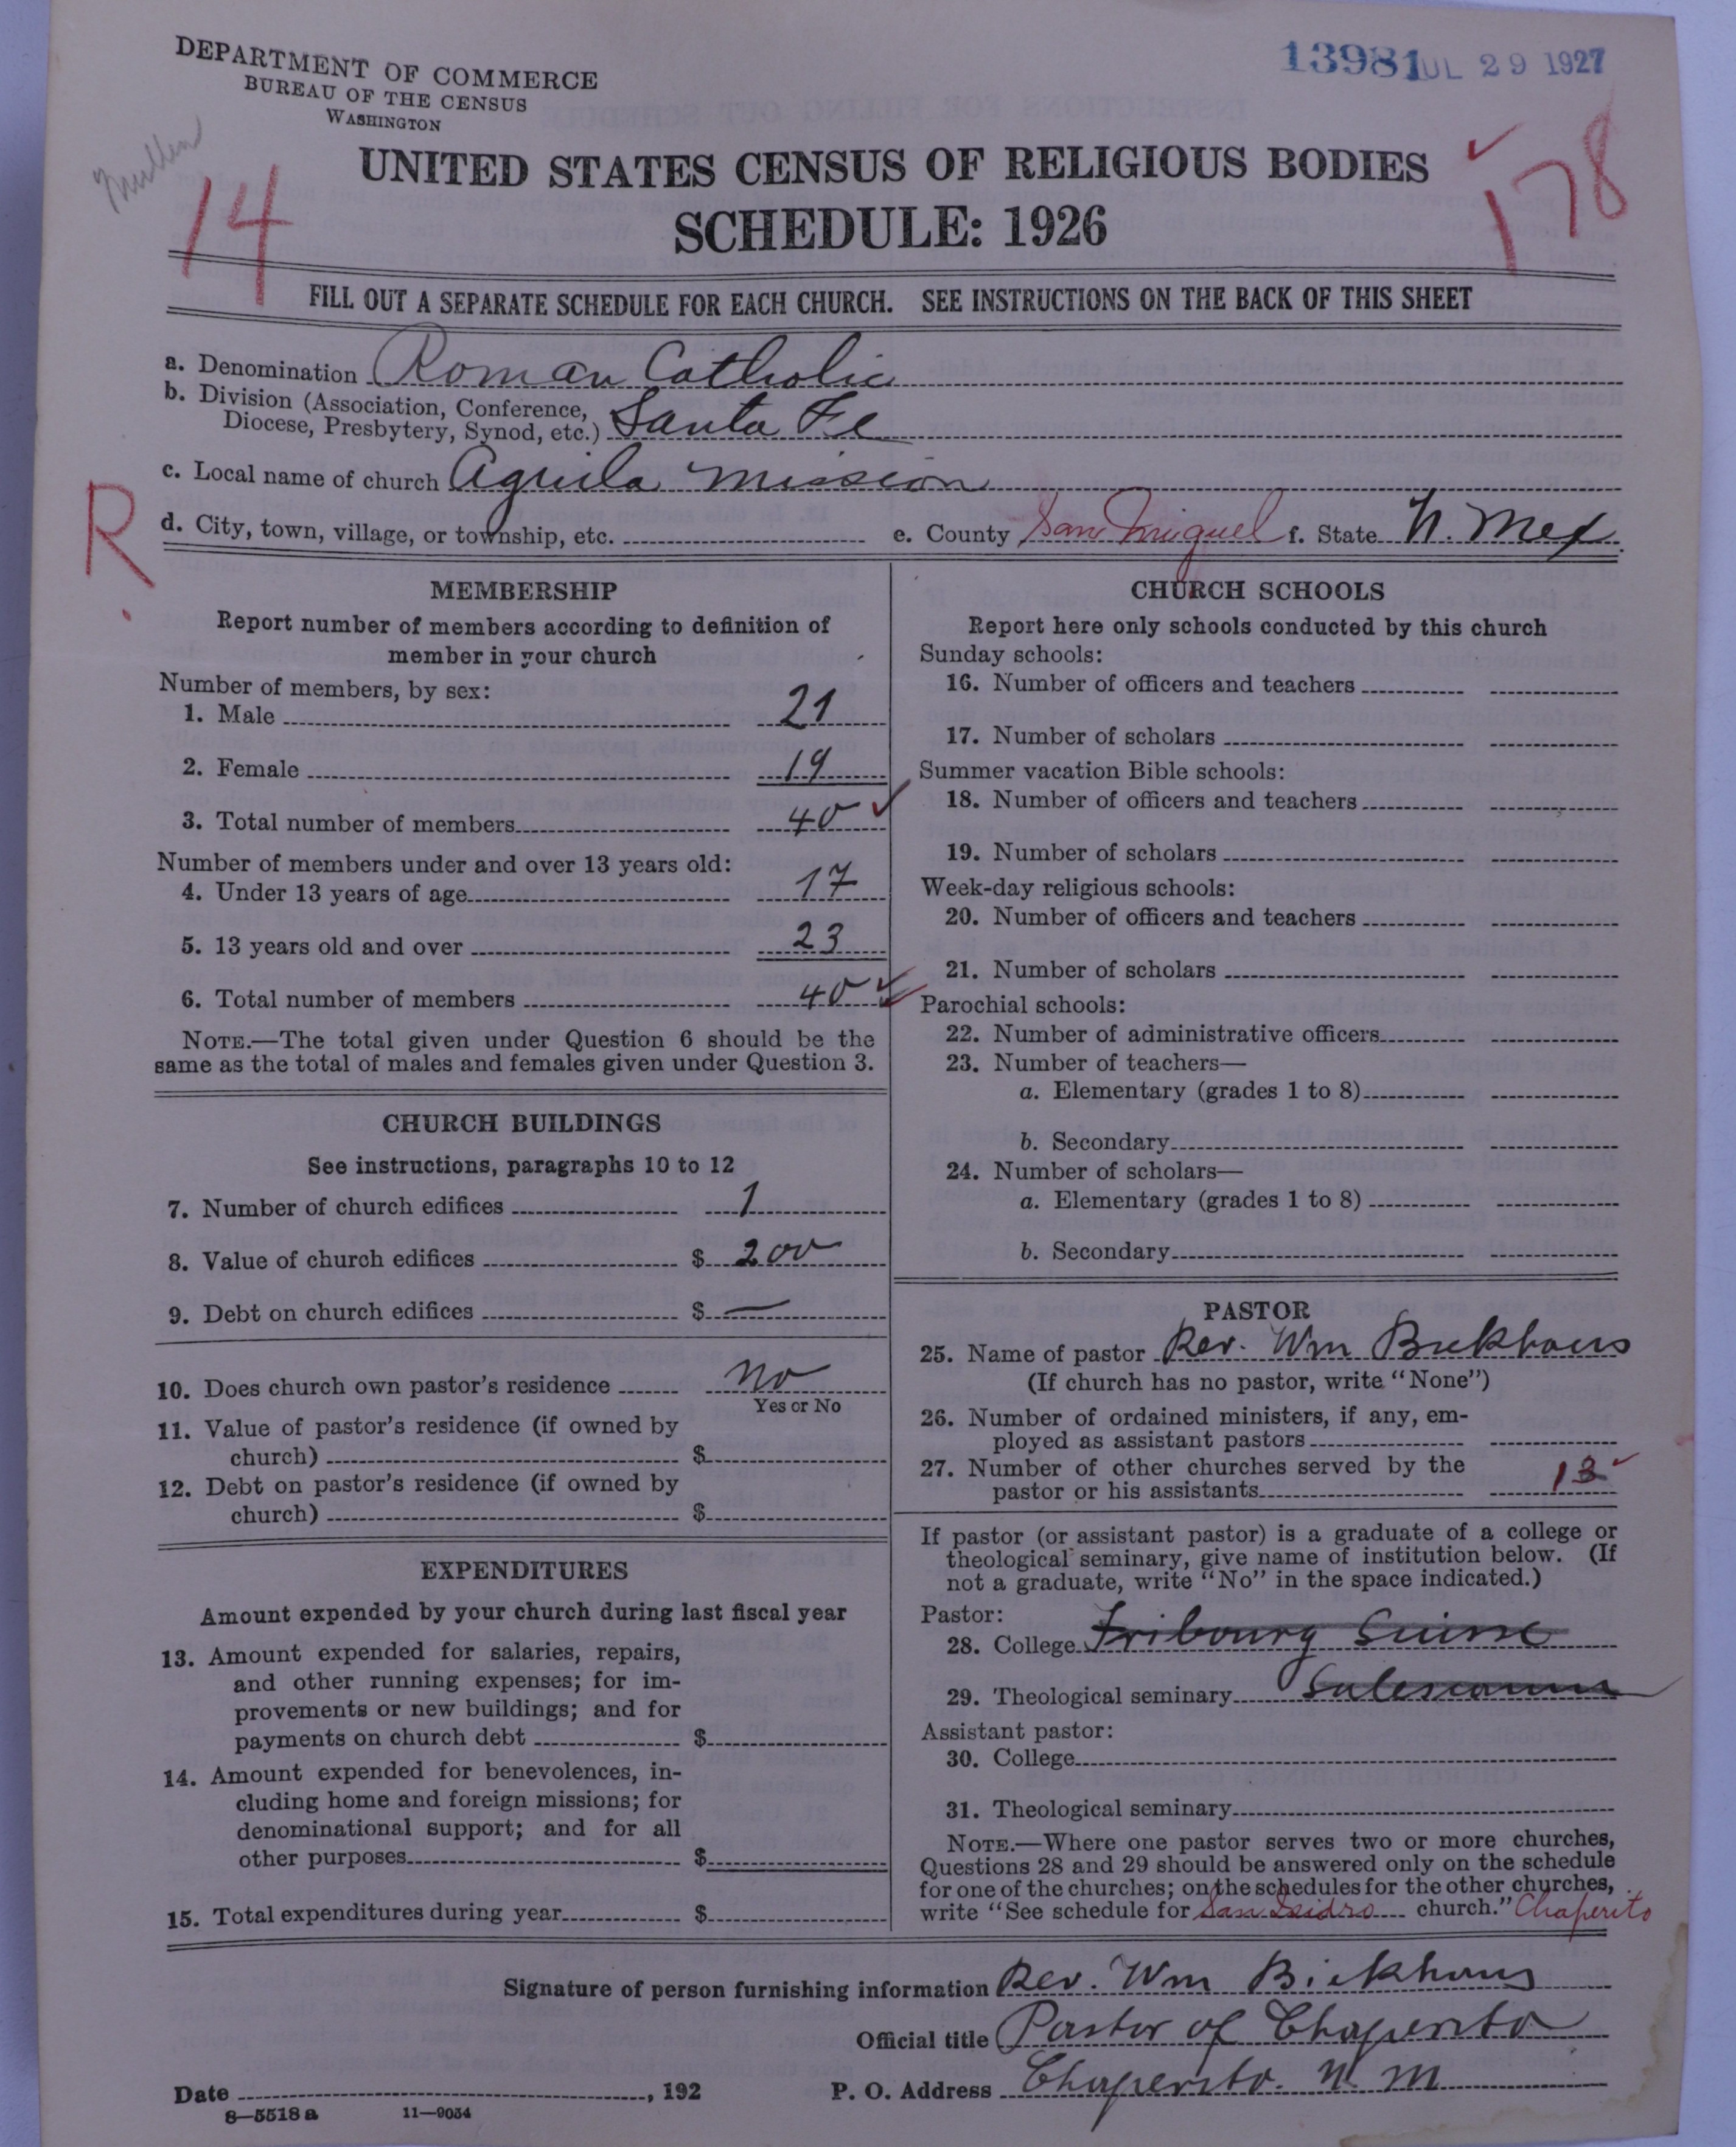 DEPARTMENT OF COMMERCE
BUREAU OF THE CENSUS
WASHINGTON
13981
JUL 29 1927
Mullen
14
178
UNITED STATES CENSUS OF RELIGIOUS BODIES
SCHEDULE: 1926
FILL OUT A SEPARATE SCHEDULE FOR EACH CHURCH. SEE INSTRUCTIONS ON THE BACK OF THIS SHEET
a. Denomination Roman Catholic
b. Division (Association, Conference,
Diocese, Presbytery, Synod, etc.) Santa Fe
c. Local name of church Aguila mission
R.
d. City, town, village, or township, etc. e. County San Miguel f. State N. Mex.
MEMBERSHIP
Report number of members according to definition of
member in your church
Number of members, by sex:
1. Male 21
2. Female 19
3. Total number of members 40
Number of members under and over 13 years old:
4. Under 13 years of age 17
5. 13 years old and over 23
6. Total number of members 40
NOTE.—The total given under Question 6 should be the
same as the total of males and females given under Question 3.
CHURCH BUILDINGS
See instructions, paragraphs 10 to 12
7. Number of church edifices 1
8. Value of church edifices $ 200
9. Debt on church edifices $ —
10. Does church own pastor's residence No
Yes or No
11. Value of pastor's residence (if owned by
church) $
12. Debt on pastor's residence (if owned by
church) $
EXPENDITURES
Amount expended by your church during last fiscal year
13. Amount expended for salaries, repairs,
and other running expenses; for im-
provements or new buildings; and for
payments on church debt $
14. Amount expended for benevolences, in-
cluding home and foreign missions; for
denominational support; and for all
other purposes $
15. Total expenditures during year $
CHURCH SCHOOLS
Report here only schools conducted by this church
Sunday schools:
16. Number of officers and teachers
17. Number of scholars
Summer vacation Bible schools:
18. Number of officers and teachers
19. Number of scholars
Week-day religious schools:
20. Number of officers and teachers
21. Number of scholars
Parochial schools:
22. Number of administrative officers
23. Number of teachers—
a. Elementary (grades 1 to 8)
b. Secondary
24. Number of scholars—
a. Elementary (grades 1 to 8)
b. Secondary
PASTOR
25. Name of pastor Rev. Wm Bickhaus
(If church has no pastor, write "None")
26. Number of ordained ministers, if any, em-
ployed as assistant pastors
27. Number of other churches served by the
pastor or his assistants 13
If pastor (or assistant pastor) is a graduate of a college or
theological seminary, give name of institution below. (If
not a graduate, write "No" in the space indicated.)
Pastor:
28. College Fribourg Suisse
29. Theological seminary
Assistant pastor:
30. College
31. Theological seminary
NOTE.—Where one pastor serves two or more churches,
Questions 28 and 29 should be answered only on the schedule
for one of the churches; on the schedules for the other churches,
write "See schedule for San Isidro church." Chaperito
Signature of person furnishing information Rev. Wm Bickhaus
Official title Pastor of Chaperito
Date , 192 P. O. Address Chaperito. N. M
8—5518 a 11—9034